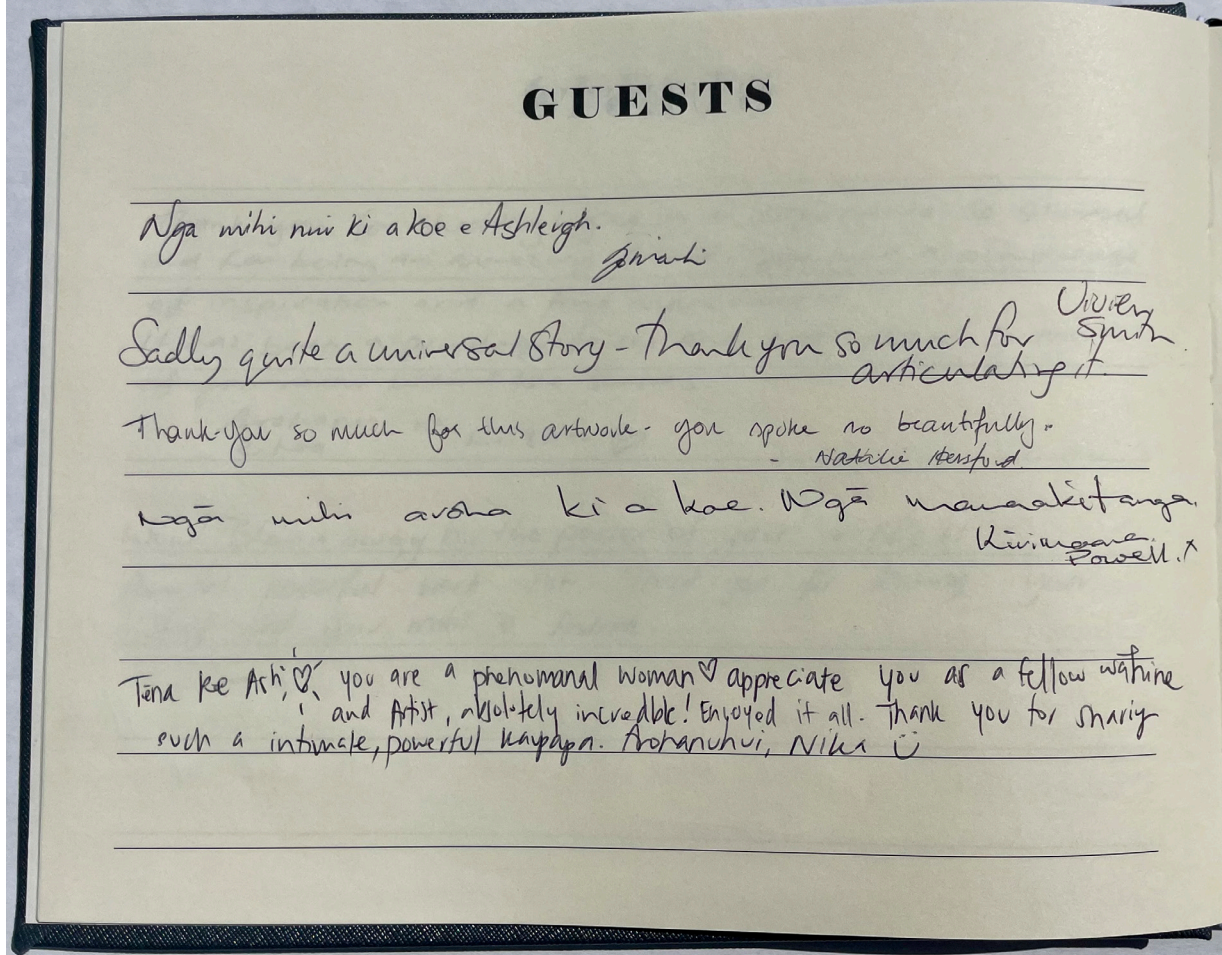 GUESTS
Nga mihi nui ki a koe e Ashleigh.
Sadly quite a universal story - Thank you so much for
articulating it.
Vivien
Smith
Thank-you so much for this artwork - you spoke so beautifully.
- Natalie
Ngā mihi aroha ki a koe. Ngā manaakitanga.
Powell. x
Tēna koe Ash, ♡ you are a phenomanal woman ♡ appreciate you as a fellow wahine
and Artist, absolutely incredble! Enjoyed it all. Thank you for sharig
such a intimate, powerful kaupapa. Arohanuhui, Nika ü